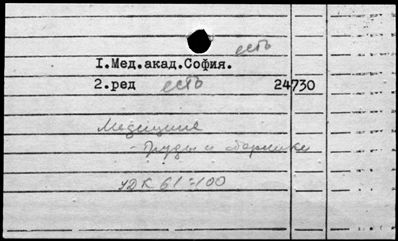 есть
I.Мед.акад.София.
2.ред есть 24730
Медицина
- Труды и сборники
УДК 61:100